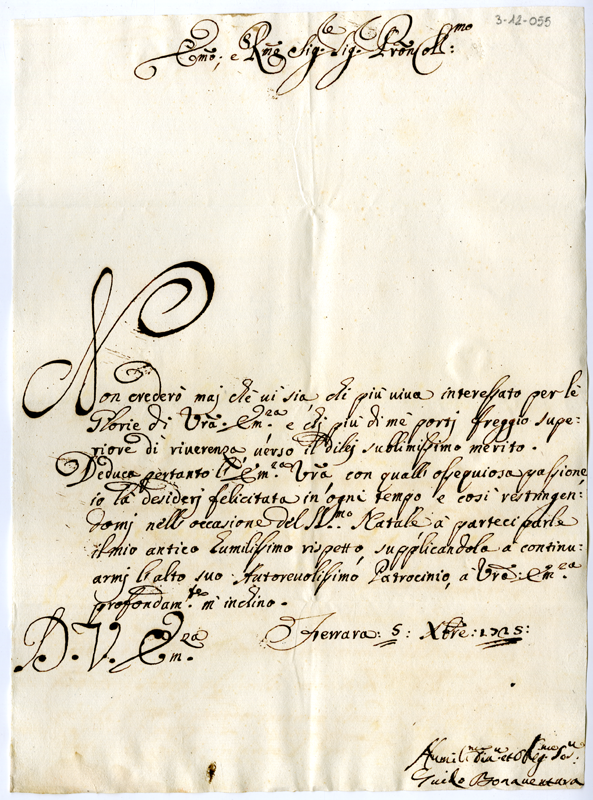 3-12-055
Emo; e Rmo Sig.r Sig.r Pron Coll:mo
Non crederò maj chè vi sia chi più viva interessato per le
Glorie di Vrã: Em.za e chj più di mè portj freggio supe:
riore di riverenza verso il dilej sublimissimo merito.
Deduca pertanto l'Em.za Vrã con qualli ossequiosa passione
io la desiderj felicitata in ogni tempo e così restringen:
domj nell'occasione del SS.mo Natale à parteciparle
il mio antico humilissimo rispetto, supplicandola à continu:
armj l'alto suo Autorevolissimo Patrocinio, à Vrã: Em.za
profondam.te m'inchino.
D. V. Em.za Ferrara: 5: Xbre: 1725:
Humil.mo
Guido Bonaventura